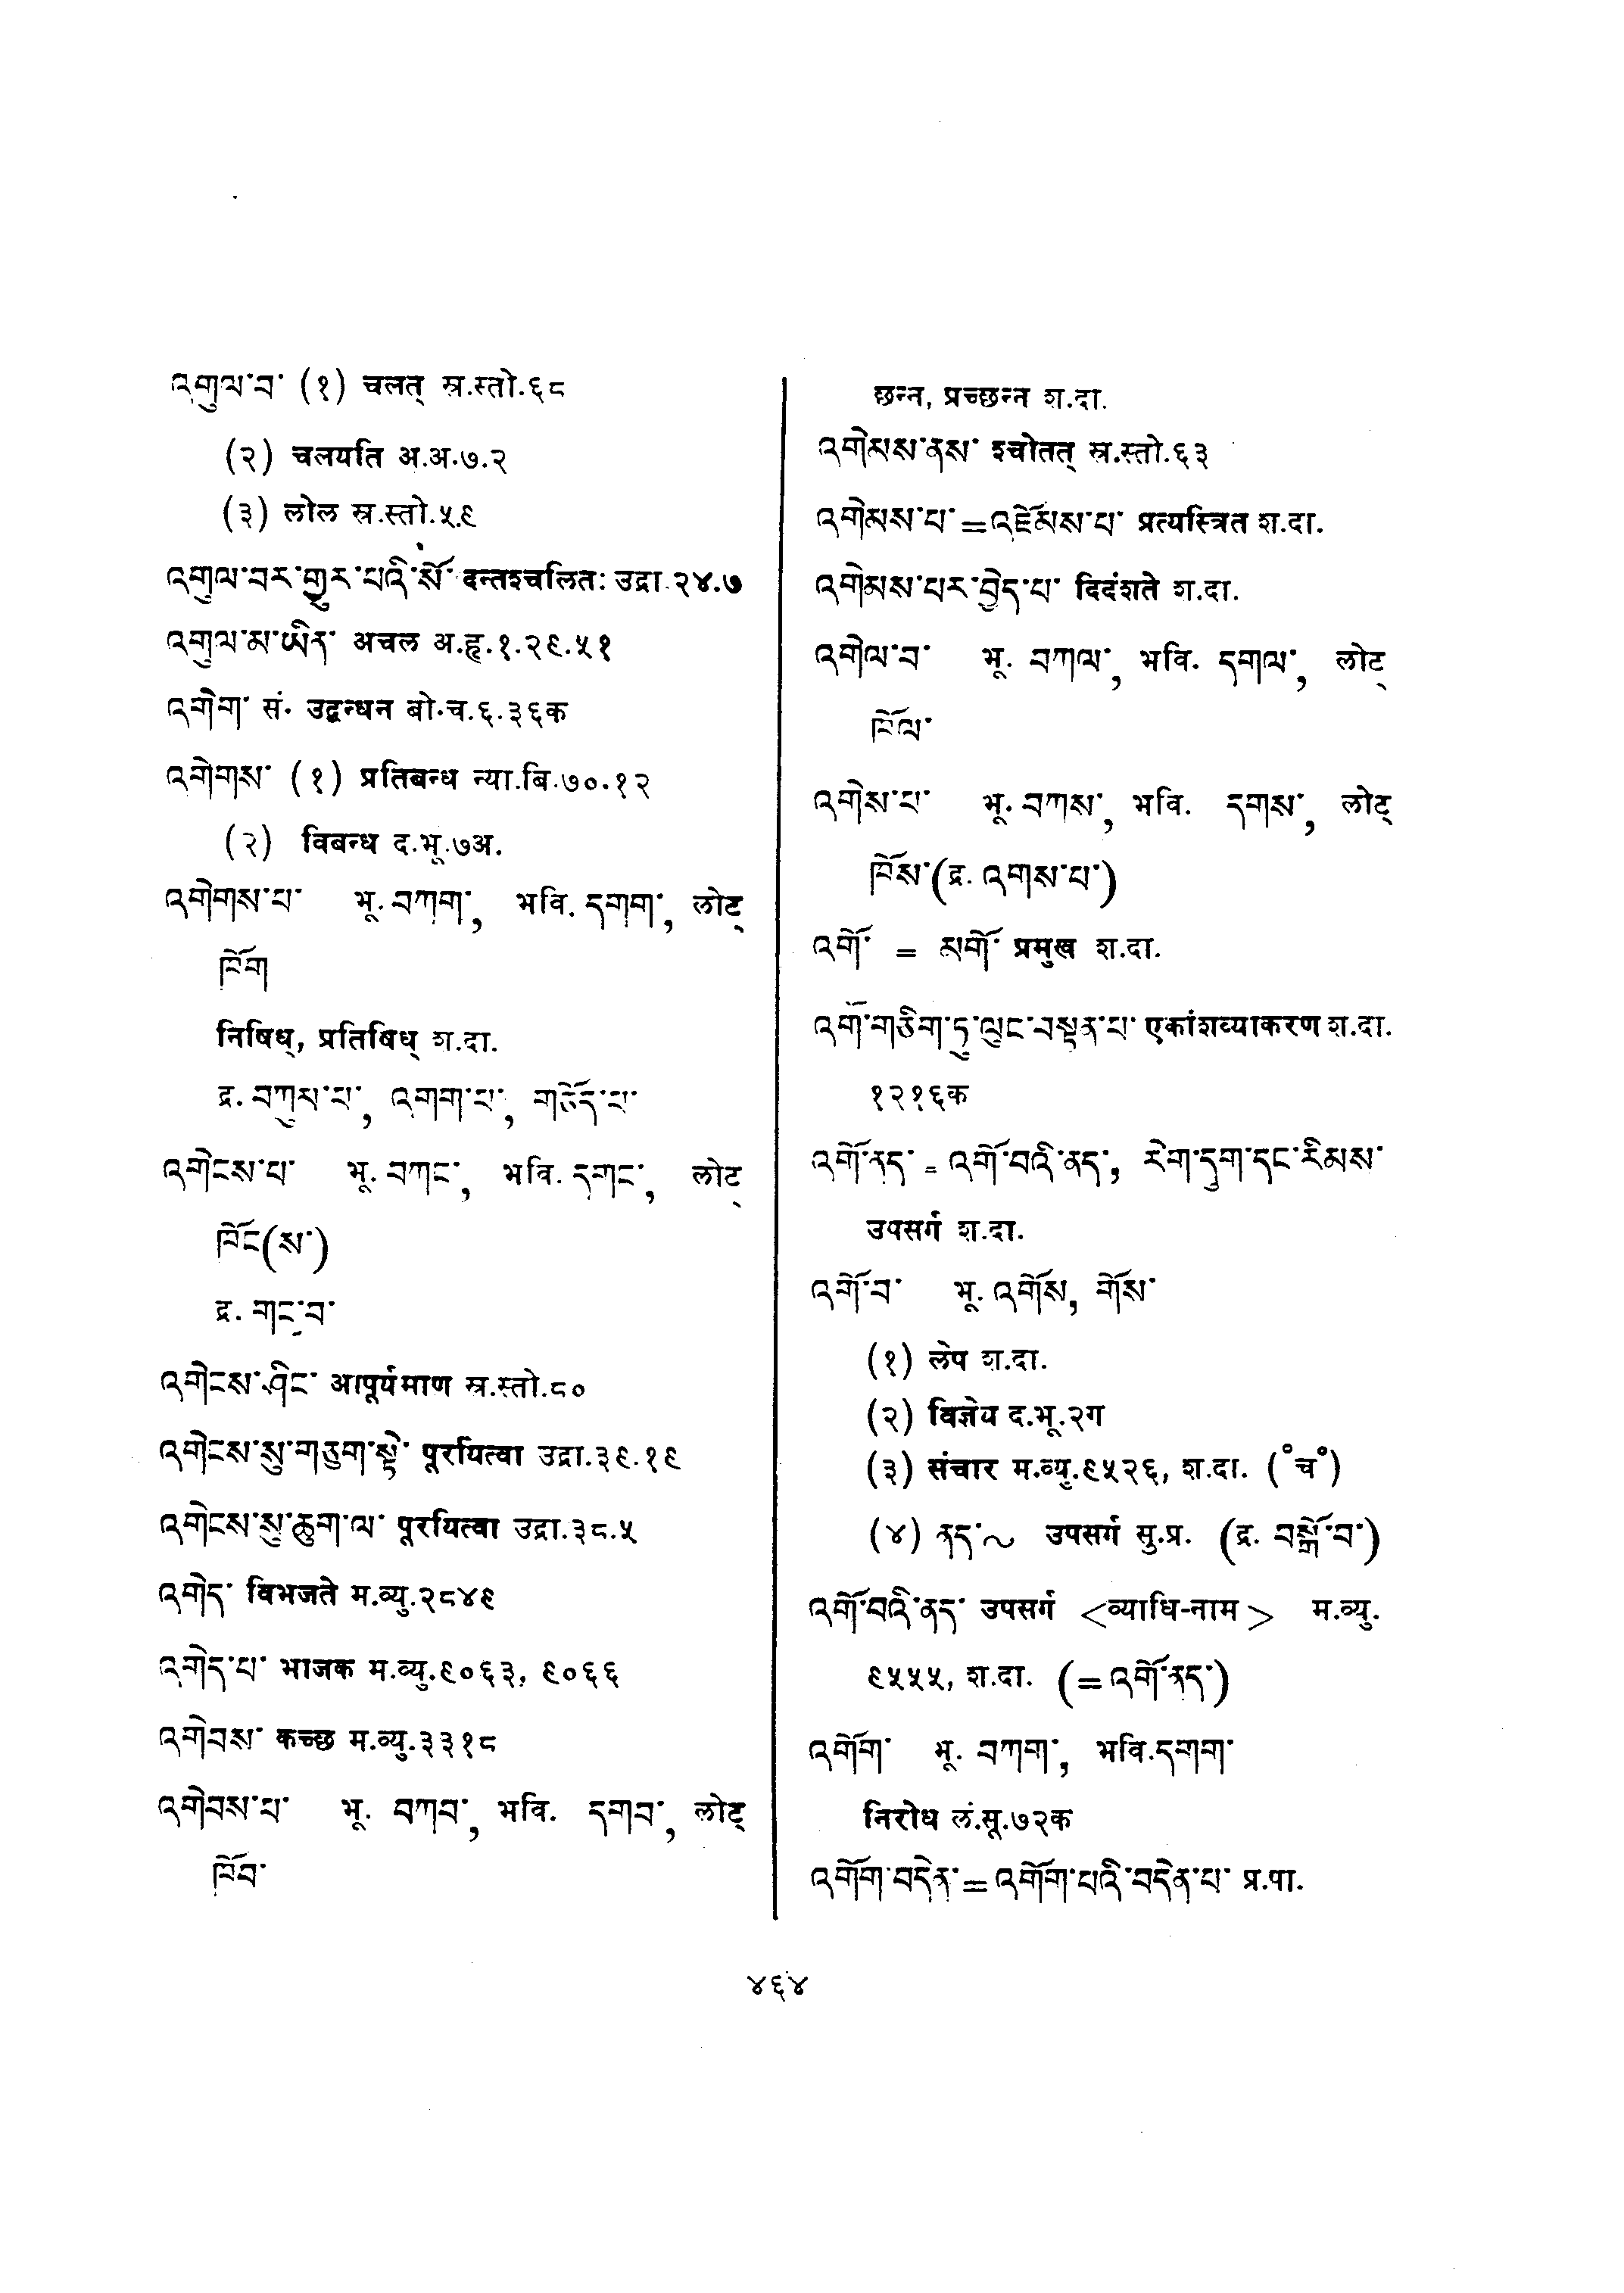 འགུལ་བ་ (१) चलत् स्र.स्तो.६८
(२) चलयति अ.अ.७.२
(३) लोल स्र.स्तो.५९
འགུལ་བར་གྱུར་པའི་སོ་ दन्तश्चलितः उद्रा.२४.७
འགུལ་མ་ཡིན་ अचल अ.हृ.१.२९.५१
འགེག་ सं. उद्बन्धन बो.च.६.३६क
འགེགས་ (१) प्रतिबन्ध न्या.बि.७०.१२
(२) विबन्ध द.भू.७अ.
འགེགས་པ་ भू. བཀག་, भवि. དགག་, लोट्
ཁོག
निषिध्, प्रतिषिध् श.दा.
द्र. བཀུས་པ་, འགག་པ་, གཅོད་པ་
འགེངས་པ་ भू. བཀང་, भवि. དགང་, लोट्
ཁོང(ས་)
द्र. གང་བ་
འགེངས་ཤིང་ आपूर्यमाण स्र.स्तो.८०
འགེངས་སུ་གཅུག་སྟེ་ पूरयित्वा उद्रा.३९.१९
འགེངས་སུ་ཆུག་ལ་ पूरयित्वा उद्रा.३८.५
འགེད་ विभजते म.व्यु.२८४९
འགེད་པ་ भाजक म.व्यु.९०६३, ९०६६
འགེབས་ कच्छ म.व्यु.३३१८
འགེབས་པ་ भू. བཀབ་, भवि. དགབ་, लोट्
ཁོབ་
छन्न, प्रच्छन्न श.दा.
འགེམས་ནས་ श्चोतत् स्र.स्तो.६३
འགེམས་པ་=འཇོམས་པ་ प्रत्यस्त्रित श.दा.
འགེམས་པར་བྱེད་པ་ दिदंशते श.दा.
འགེལ་བ་ भू. བཀལ་, भवि. དགལ་, लोट्
ཁོལ་
འགེས་པ་ भू. བཀས་, भवि. དགས་, लोट्
ཁོས་(द्र. འགས་པ་)
འགོ་ = མགོ་ प्रमुख श.दा.
འགོ་གཅིག་ཏུ་ལུང་བསྟན་པ་ एकांशव्याकरण श.दा.
१२१६क
འགོ་ནད་ = འགོ་བའི་ནད་, རེག་དུག་དང་རིམས་
उपसर्ग श.दा.
འགོ་བ་ भू. འགོས, གོས་
(१) लेप श.दा.
(२) विज्ञेय द.भू.२ग
(३) संचार म.व्यु.९५२६, श.दा. (॰च॰)
(४) ནད་~ उपसर्ग सु.प्र. (द्र. བསྒོ་བ་)
འགོ་བའི་ནད་ उपसर्ग <व्याधि-नाम> म.व्यु.
९५५५, श.दा. (=འགོ་ནད་)
འགོག་ भू. བཀག་, भवि.དགག་
निरोध लं.सू.७२क
འགོག་བདེན་=འགོག་པའི་བདེན་པ་ प्र.पा.
४६४